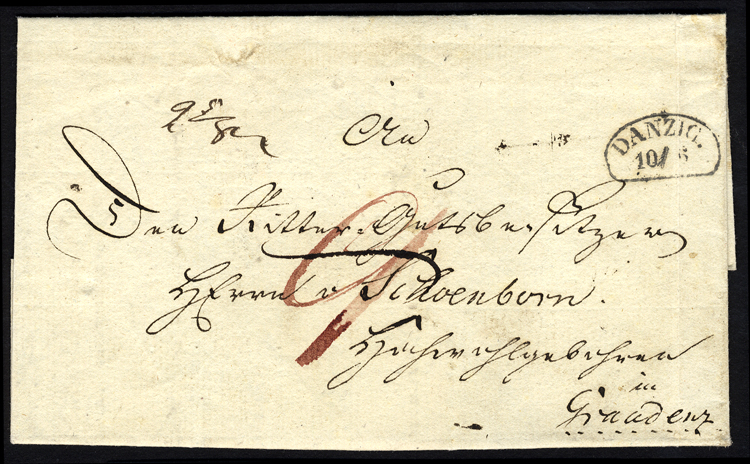 An
DANZIG.
10/6
Den Ritter-Gutsbesitzer
Herrn v Schoenborn.
9
Hochwohlgebohren
in
Graudenz